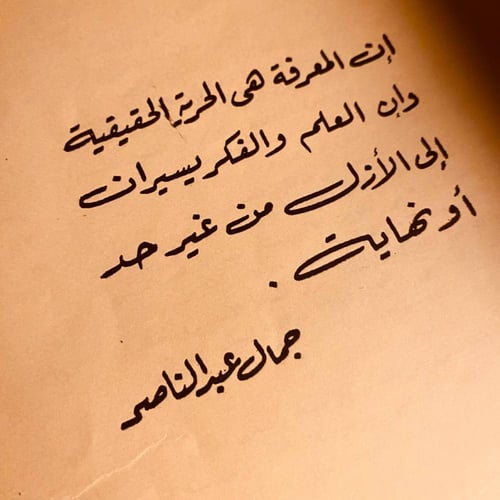 إن المعرفة هى الحرية الحقيقية
وإن العلم والفكر يسيران
إلى الأزل من غير حد
أو نهاية .
جمال عبد الناصر